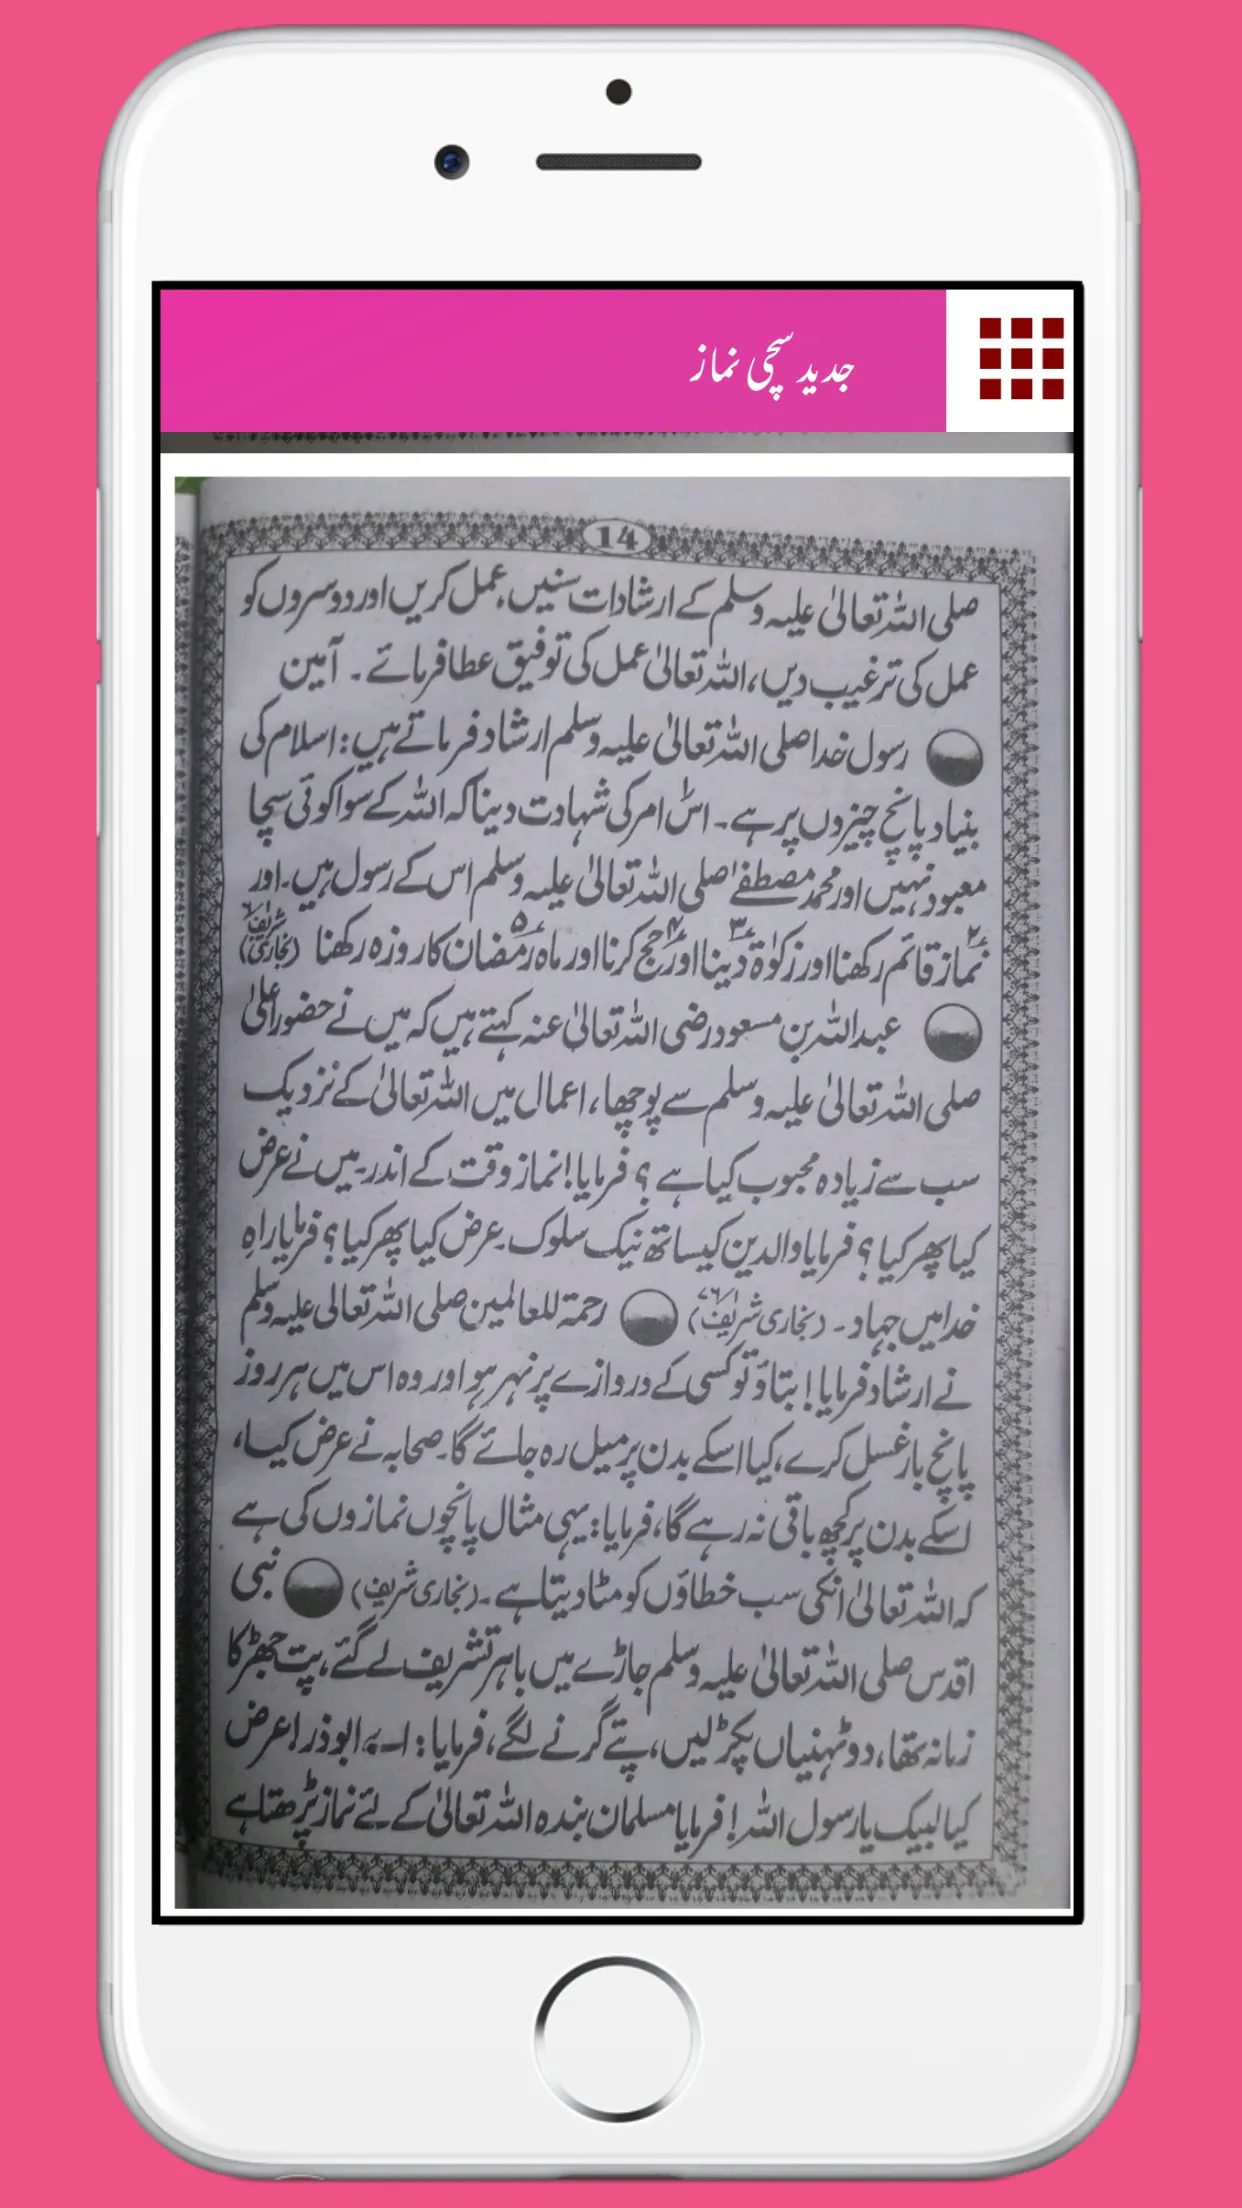 جدید سچی نماز
14
صلی اللہ تعالیٰ علیہ وسلم کے ارشادات سنیں، عمل کریں اور دوسروں کو
عمل کی ترغیب دیں، اللہ تعالیٰ عمل کی توفیق عطا فرمائے۔ آمین
رسول خدا صلی اللہ تعالیٰ علیہ وسلم ارشاد فرماتے ہیں: اسلام کی
بنیاد پانچ چیزوں پر ہے۔ اس امر کی شہادت دینا کہ اللہ کے سوا کوئی سچا
معبود نہیں اور محمد مصطفےٰ صلی اللہ تعالیٰ علیہ وسلم اس کے رسول ہیں۔ اور
نماز قائم رکھنا اور زکوٰۃ دینا اور حج کرنا اور ماہ رمضان کا روزہ رکھنا (بخاری شریف)
عبداللہ بن مسعود رضی اللہ تعالیٰ عنہ کہتے ہیں کہ میں نے حضور اعلیٰ
صلی اللہ تعالیٰ علیہ وسلم سے پوچھا، اعمال میں اللہ تعالیٰ کے نزدیک
سب سے زیادہ محبوب کیا ہے؟ فرمایا! نماز وقت کے اندر۔ میں نے عرض
کیا پھر کیا؟ فرمایا والدین کیساتھ نیک سلوک۔ عرض کیا پھر کیا؟ فرمایا راہِ
خدا میں جہاد۔ (بخاری شریف) رحمۃ للعالمین صلی اللہ تعالی علیہ وسلم
نے ارشاد فرمایا! بتاؤ تو کسی کے دروازے پر نہر ہو اور وہ اس میں ہر روز
پانچ بار غسل کرے، کیا اسکے بدن پر میل رہ جائے گا۔ صحابہ نے عرض کیا،
اسکے بدن پر کچھ باقی نہ رہے گا، فرمایا: یہی مثال پانچوں نمازوں کی ہے
کہ اللہ تعالیٰ انکی سب خطاؤں کو مٹا دیتا ہے۔ (بخاری شریف) نبی
اقدس صلی اللہ تعالیٰ علیہ وسلم جاڑے میں باہر تشریف لے گئے، پت جھڑ کا
زمانہ تھا، دو ٹہنیاں پکڑ لیں، پتے گرنے لگے، فرمایا: اے ابوذر! عرض
کیا لبیک یا رسول اللہ! فرمایا مسلمان بندہ اللہ تعالیٰ کے لئے نماز پڑھتا ہے